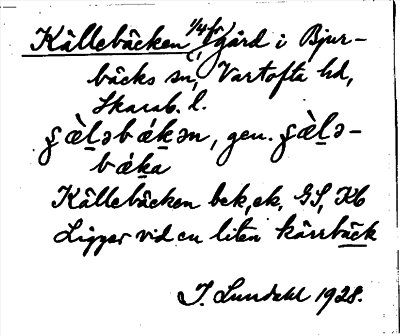 Källebäcken, 1/4 fr gård i Bjur-
bäcks sn, Vartofta hd,
Skarab. l.
ʂæ̀ḷəbákən, gen. ʂæ̀ḷə-
báka
Källebäcken bek, ek, GS, Kb
Ligger vid en liten kärrbäck
I. Lundahl 1928.